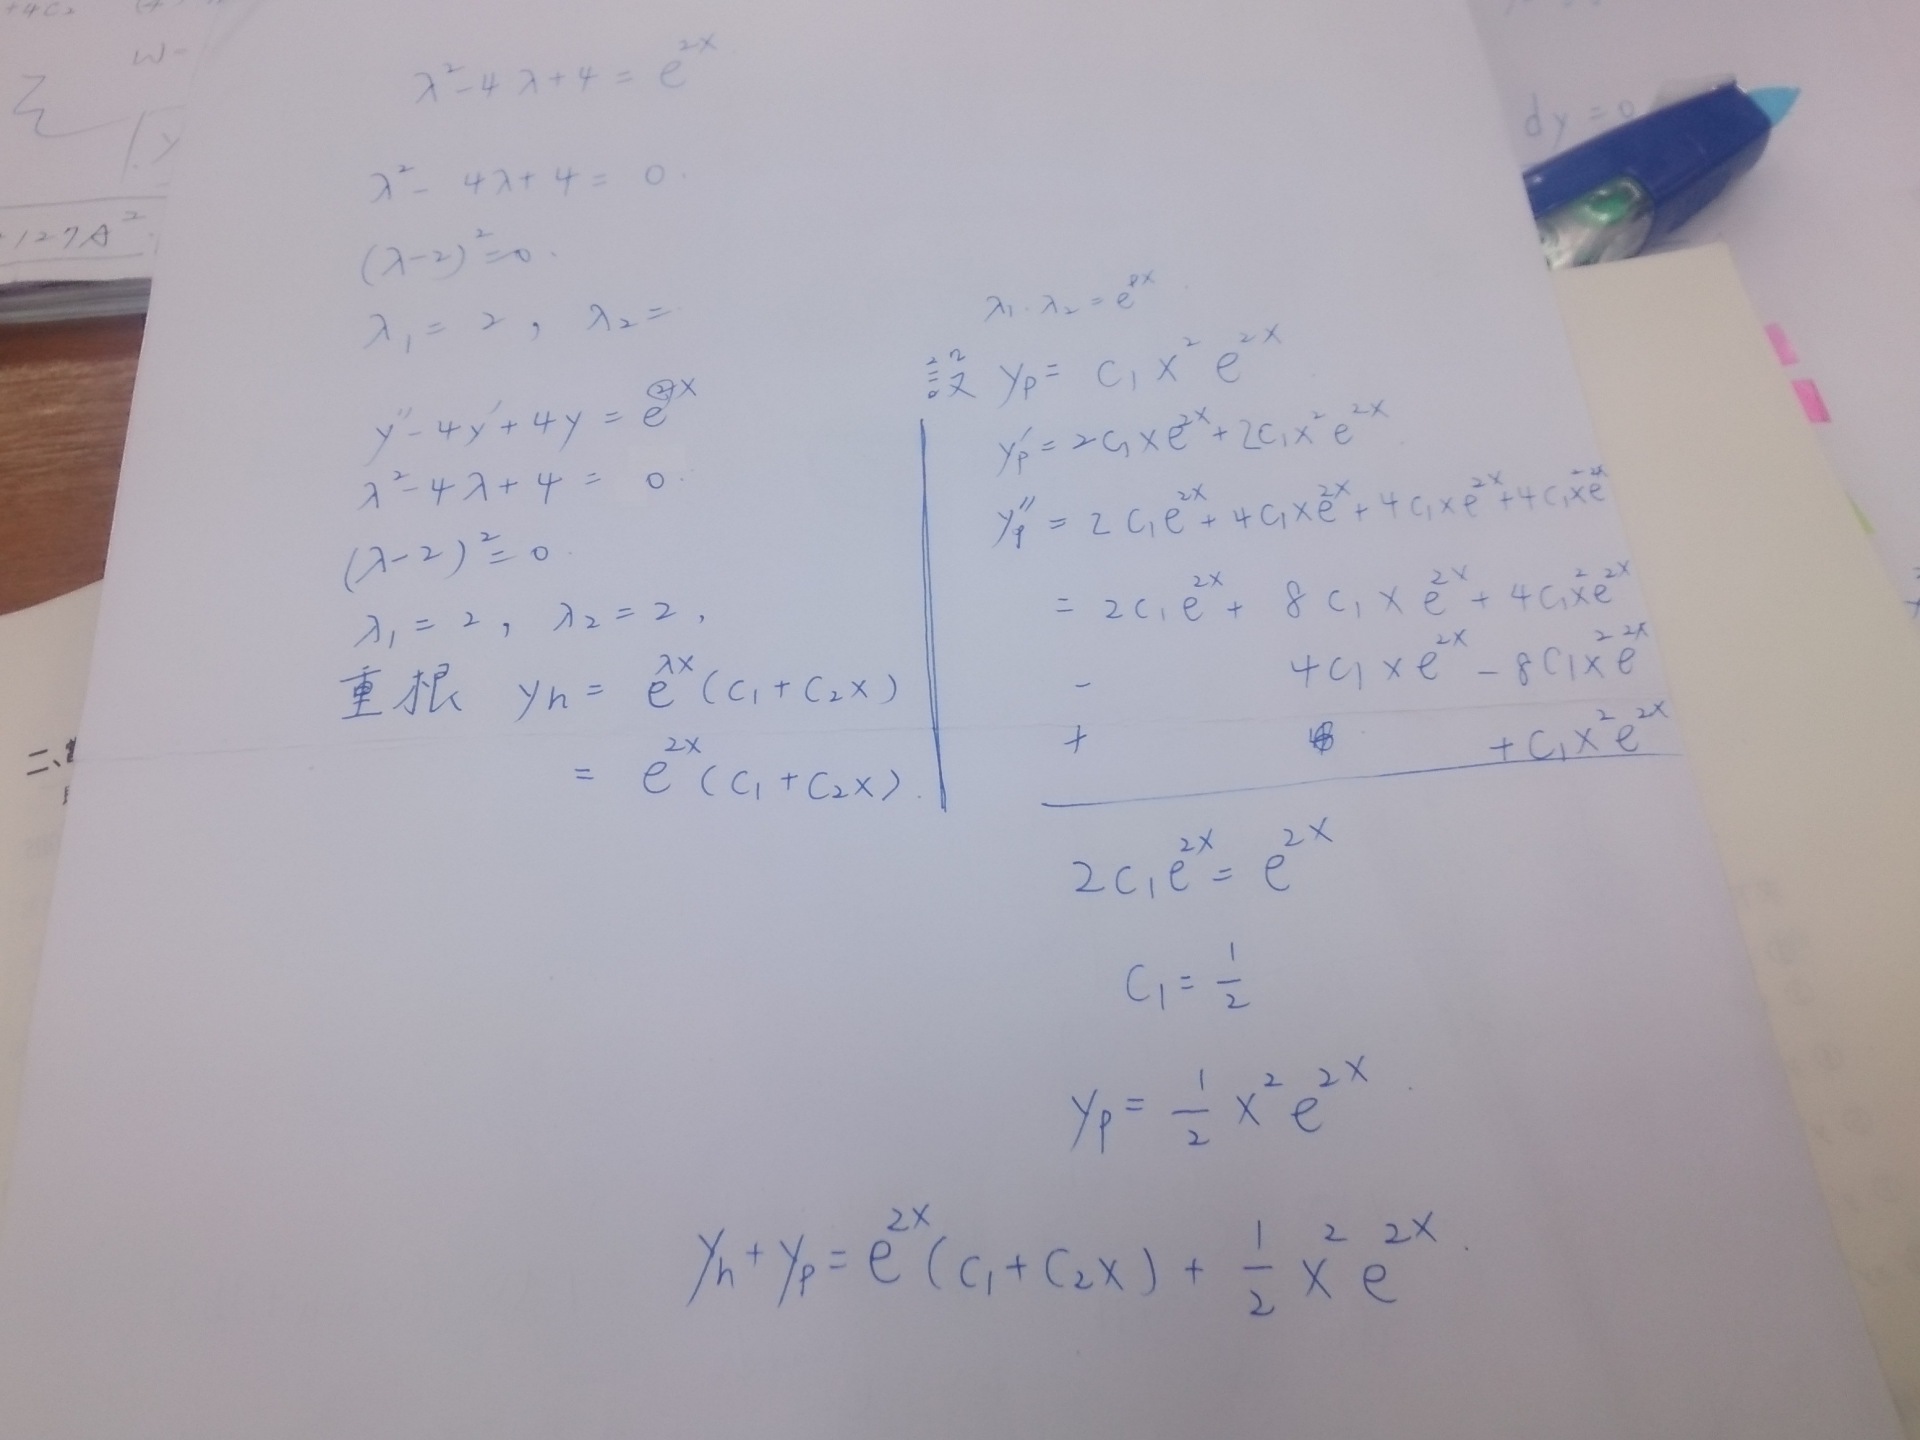 λ²-4λ+4 = e^{2x}
λ²-4λ+4 = 0.
(λ-2)²=0.
λ₁ = 2, λ₂ =
y''-4y'+4y = e^{2x}
λ²-4λ+4 = 0.
(λ-2)²=0.
λ₁ = 2, λ₂ = 2,
重根 yh = e^{λx}(C₁+C₂x)
= e^{2x}(C₁+C₂x).
λ₁·λ₂ = e^{2x}
設 yp = C₁x²e^{2x}
yp' = 2C₁xe^{2x}+2C₁x²e^{2x}
yp'' = 2C₁e^{2x}+4C₁xe^{2x}+4C₁xe^{2x}+4C₁x²e^{2x}
= 2C₁e^{2x}+8C₁xe^{2x}+4C₁x²e^{2x}
- 4C₁xe^{2x}-8C₁x²e^{2x}
+ +C₁x²e^{2x}
2C₁e^{2x} = e^{2x}
C₁ = 1/2
yp = 1/2 x²e^{2x}.
yh+yp = e^{2x}(C₁+C₂x)+1/2 x²e^{2x}.
dy = 0
127A²
二、